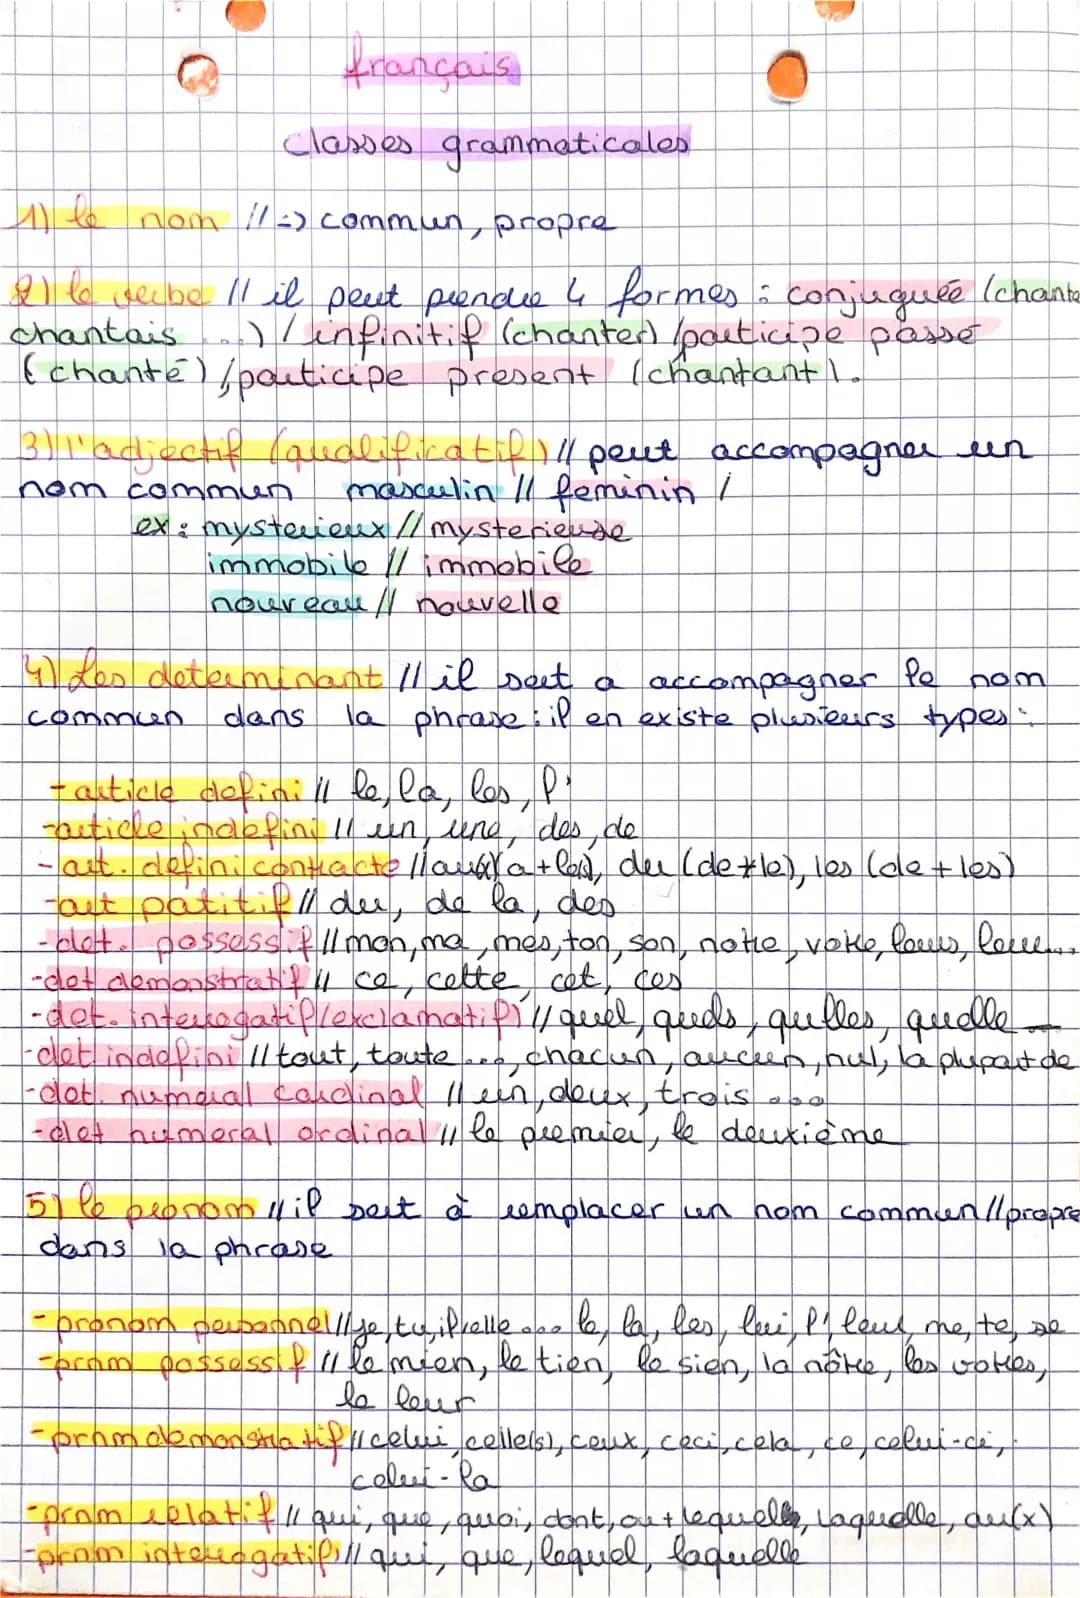 français
classes grammaticales
1) le nom // => commun, propre
2) le verbe // il peut prendre 4 formes : conjuguée (chante
chantais ...) / infinitif (chanter) / participe passé
(chanté) / participe present (chantant).
3) l'adjectif (qualificatif) // peut accompagner un
nom commun masculin // feminin /
ex : mysterieux // mysterieuse
immobile // immobile
nouveau // nouvelle
4) Les determinant // il sert a accompagner le nom
commun dans la phrase : il en existe plusieurs types :
- article defini // le, la, les, l'
- article indefini // un, une, des, de
- art. defini contracte // au(x)(a + le(s), du (de + le), les (de + les)
- art patitif // du, de la, des
- det. possessif // mon, ma, mes, ton, son, notre, votre, leurs, leur...
- det demonstratif // ce, cette, cet, ces
- det. interrogatif (exclamatif) // quel, quels, quelles, quelle
- det indefini // tout, toute ..., chacun, aucun, nul, la plupart de
- det. numeral cardinal // un, deux, trois ...
- det numeral ordinal // le premier, le deuxième
5) le pronom // il sert à remplacer un nom commun // propre
dans la phrase
- pronom personnel // je, tu, il, elle ... le, la, les, lui, l', leur, me, te, se
- prnm possessif // le mien, le tien, le sien, la nôtre, les votres,
le leur
- prnm demonstratif // celui, celle(s), ceux, ceci, cela, ce, celui-ci,
celui-la
- prnm relatif // qui, que, quoi, dont, ou + lequelle, laquelle, au(x)
- prnm interrogatif // qui, que, lequel, laquelle